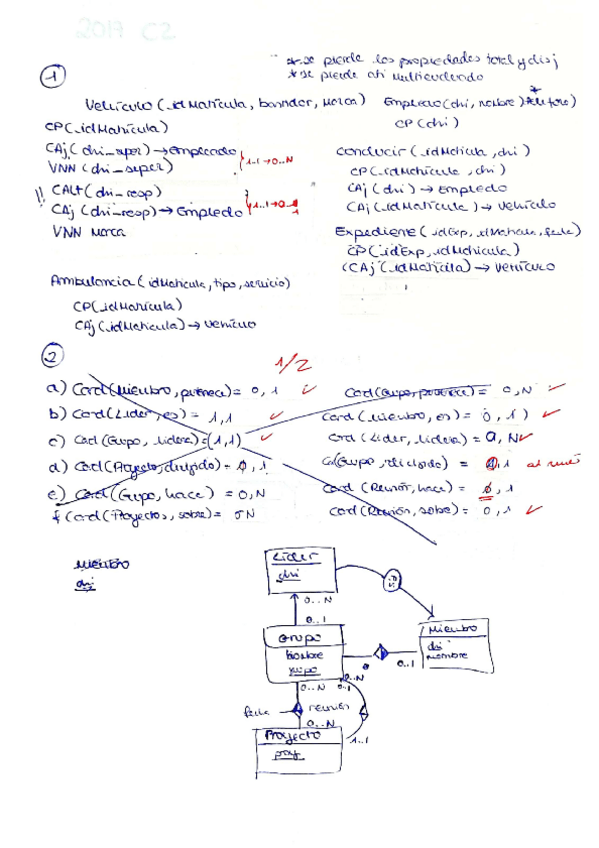 2017 C2
* se pierde las propiedades total y disj
* se pierde ati multivaluado
1
Vehículo (idMatricula, bastidor, Marca)
Empleado (dni, nombre) telefono *
CP (idMatricula)
CP (dni)
CAj (dni_super) → Empleado
VNN (dni_super)
1..1 → 0..N
Conducir (idMatricula, dni)
CP (idMatricula, dni)
!! CAlt (dni_resp)
CAj (dni) → Empledo
CAj (dni_resp) → Empledo
1..1 → 0..1
CAj (idMatricula) → Vehículo
VNN Marca
Expediene (idExp, idMatricula, fecha)
CP (idExp, idMatricula)
CAj (idMatricula) → Vehículo
Ambulancia (idMatricula, tipo, servicio)
CP (idMatricula)
CAj (idMatricula) → Vehículo
2
1/2
a) Card (Miembro, pertenece) = 0, 1
Card (Grupo, pertenece) = 0, N
b) Card (Lider, es) = 1, 1
Card (Miembro, es) = 0, 1)
c) Card (Grupo, lidera) = (1, 1)
Card (Lider, lidera) = 0, N
d) Card (Proyecto, dirigido) = 0, 1
= 0, 1 al menos
e) Card (Grupo, hace) = 0, N
Card (Reunión, hace) = 0, 1
f) Card (Proyectos, sobre) = 0 N
Card (Reunión, sobre) = 0, 1
Miembro
dni
Lider
dni
es
0..N
0..1
Grupo
nombre
Miembro
dni
nombre
0..1
0..N
0..1
fecha
reunión
0..N
Proyecto
proy
1..1